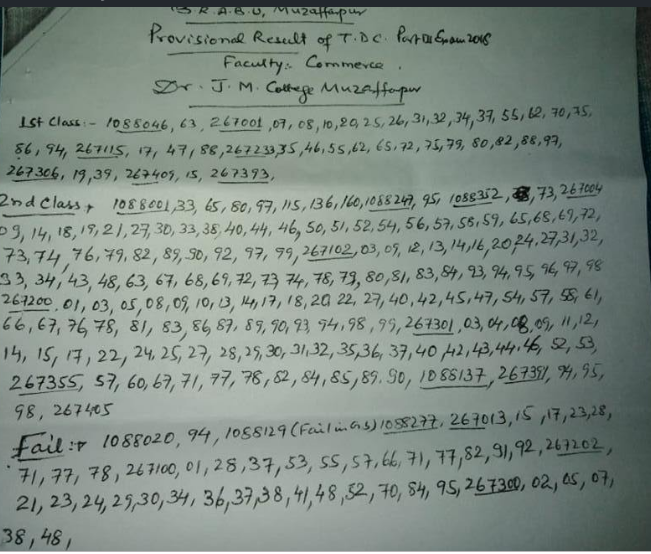 B.R.A.B.U, Muzaffarpur
Provisional Result of T.D.C. Part III Exam 2018
Faculty:- Commerce.
Dr. J. M. College Muzaffarpur
1st Class:- 1088046, 63, 267001, 07, 08, 10, 20, 25, 26, 31, 32, 34, 37, 55, 62, 70, 75,
86, 94, 267115, 17, 47, 88, 267233, 35, 46, 55, 62, 65, 72, 75, 79, 80, 82, 88, 97,
267306, 19, 39, 267409, 15, 267393,
2nd Class:- 1088001, 33, 65, 80, 97, 115, 136, 160, 1088247, 95, 1088352, 73, 267004
09, 14, 18, 19, 21, 27, 30, 33, 38, 40, 44, 46, 50, 51, 52, 54, 56, 57, 58, 59, 65, 68, 69, 72,
73, 74, 76, 79, 82, 89, 90, 92, 97, 99, 267102, 03, 09, 12, 13, 14, 16, 20, 24, 27, 31, 32,
33, 34, 43, 48, 63, 67, 68, 69, 72, 73, 74, 78, 79, 80, 81, 83, 84, 93, 94, 95, 96, 97, 98
267200, 01, 03, 05, 08, 09, 10, 13, 14, 17, 18, 20, 22, 27, 40, 42, 45, 47, 54, 57, 58, 61,
66, 67, 76, 78, 81, 83, 86, 87, 89, 90, 93, 94, 98, 99, 267301, 03, 04, 08, 09, 11, 12,
14, 15, 17, 22, 24, 25, 27, 28, 29, 30, 31, 32, 35, 36, 37, 40, 42, 43, 44, 46, 52, 53,
267355, 57, 60, 67, 71, 77, 78, 82, 84, 85, 89, 90, 1088137, 267391, 94, 95,
98, 267405
Fail:- 1088020, 94, 1088129 (Fail in G.S) 1088277, 267013, 15, 17, 23, 28,
71, 77, 78, 267100, 01, 28, 37, 53, 55, 57, 66, 71, 77, 82, 91, 92, 267202,
21, 23, 24, 29, 30, 34, 36, 37, 38, 41, 48, 52, 70, 84, 95, 267300, 02, 05, 07,
38, 48,